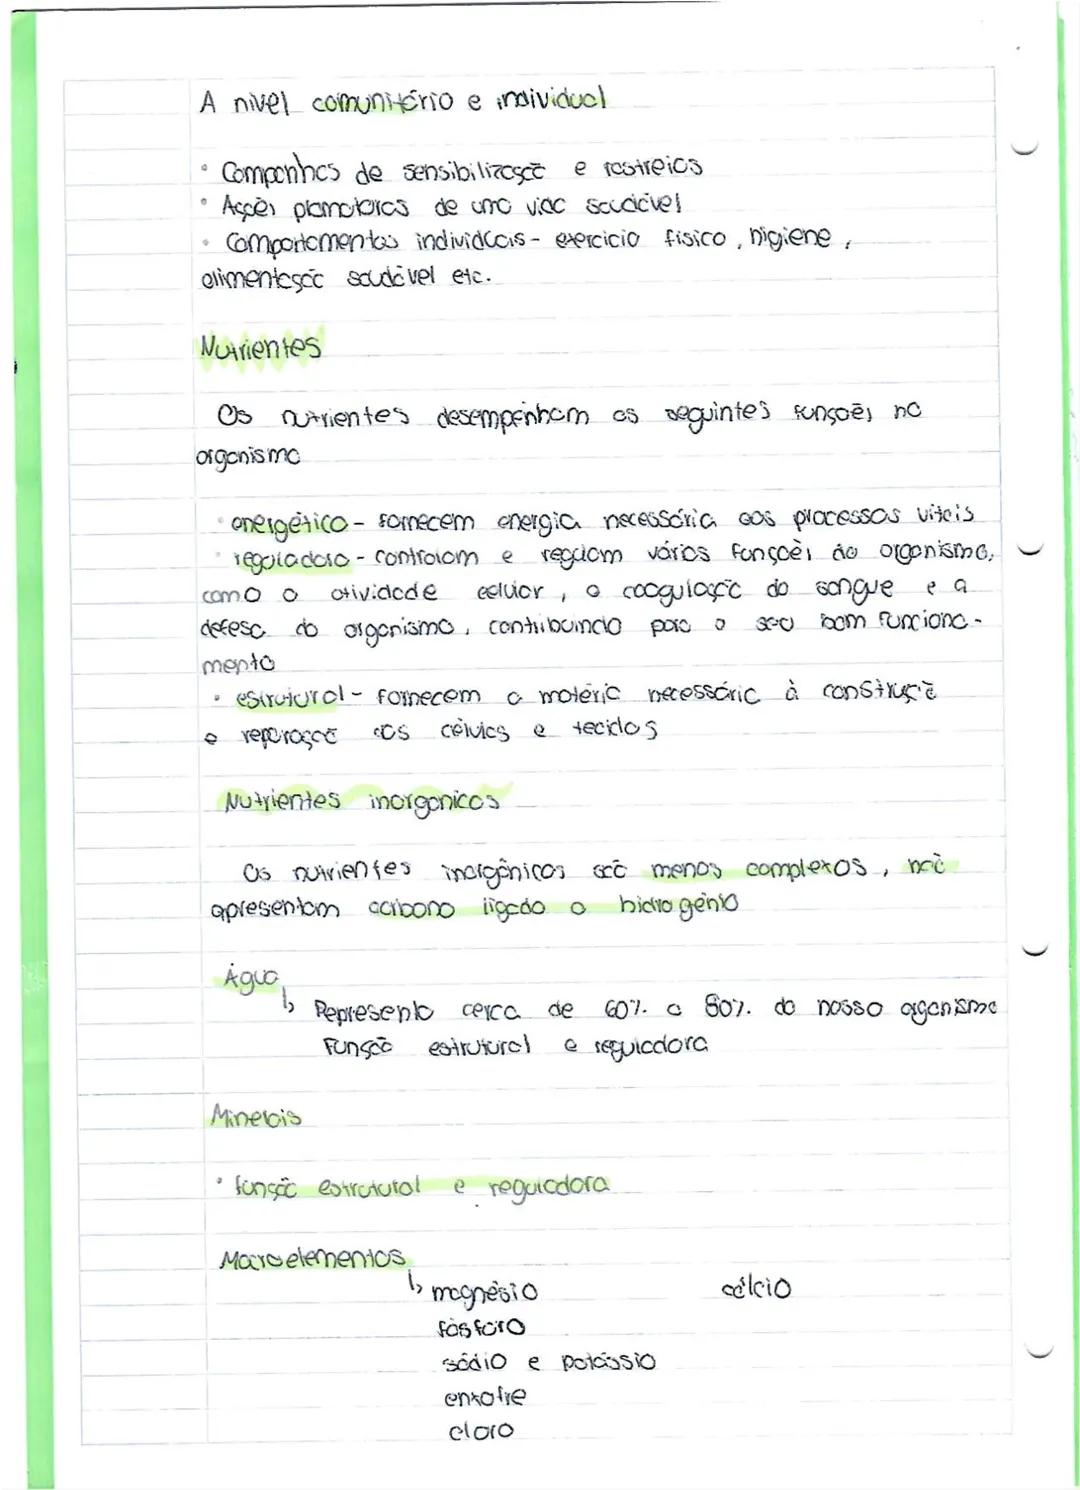 A nível comunitário e individual
• Campanhas de sensibilização e rastreios
• Ações promotoras de uma vida saudável
• Comportamentos individuais - exercicio fisico, higiene,
alimentação saudável etc.
Nutrientes
Os nutrientes desempenham as seguintes funções no
organismo
• energético - fornecem energia necessária aos processos vitais
• reguladora - controlam e regulam vários funções do organismo,
como a atividade celular, a coagulação do sangue e a
defesa do organismo, contribuindo para o seu bom funciona-
mento
• estrutural - fornecem a matéria necessária à construção
e reparação das células e tecidos
Nutrientes inorganicos
Os nutrientes inorgânicos são menos complexos, não
apresentam carbono ligado a hidrogénio
Água
↳ Representa cerca de 60% a 80% do nosso organismo
Função estrutural e reguladora
Minerais
• função estrutural e reguladora
Macroelementos
↳ magnésio cálcio
fósforo
sódio e potássio
enxofre
cloro